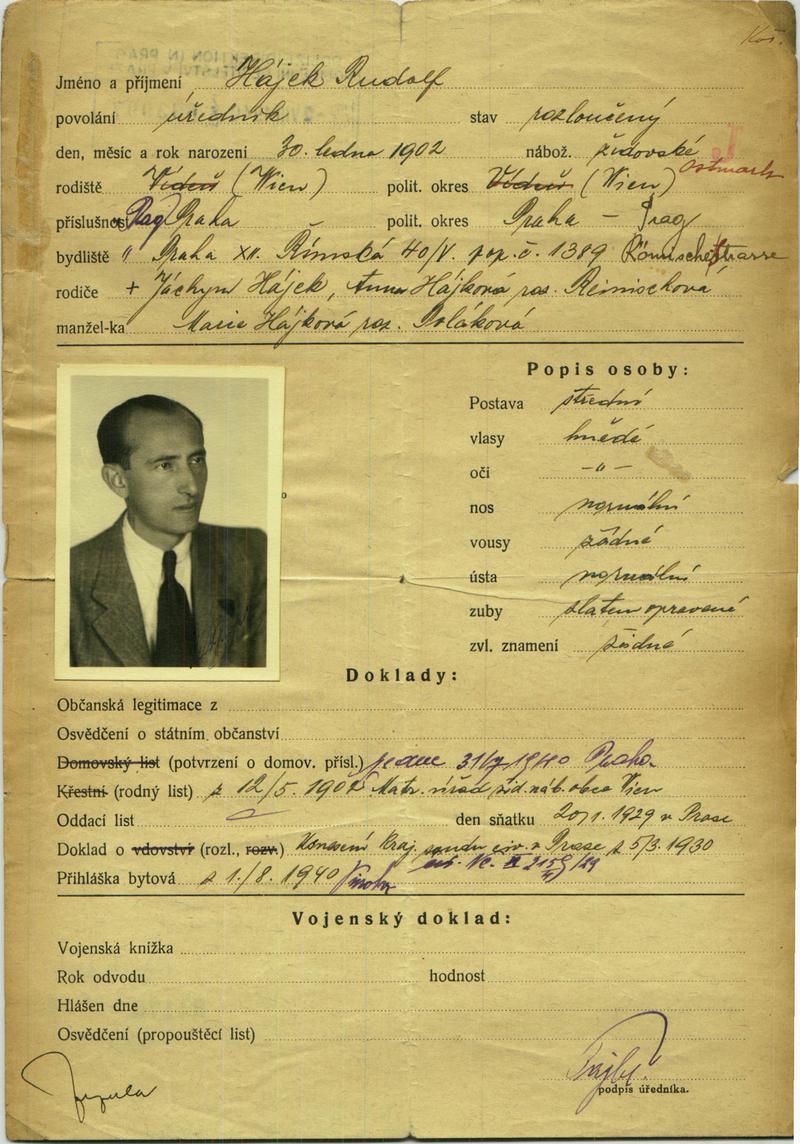 Jméno a příjmení Hájek Rudolf
povolání úředník stav rozloučený
den, měsíc a rok narození 30. ledna 1902 nábož. židovské J
rodiště Vídeň (Wien) polit. okres Vídeň (Wien) Ostmark
příslušnost Prag Praha polit. okres Praha - Prag
bydliště " Praha XII. Římská 40/V. pop. č. 1389 Römischestrasse
rodiče + Jáchym Hájek, Anna Hájková roz. Reinischová
manžel-ka Marie Hájková roz. Poláková
Popis osoby:
Postava střední
vlasy hnědé
oči -"-
nos normální
vousy žádné
ústa normální
zuby zlatem opravené
zvl. znamení žádné
Doklady:
Občanská legitimace z
Osvědčení o státním občanství
Domovský list (potvrzení o domov. přísl.) 1940 Praha.
Křestní (rodný list) z 12/5. 1902 Matr. úřad žid. náb. obce Wien
Oddací list den sňatku 20/1. 1929 v Praze
Doklad o vdovství (rozl., rozv.) Usnesení Kraj. soudu civ. v Praze z 5/3. 1930
Přihláška bytová z 1./8. 1940
Vojenský doklad:
Vojenská knížka
Rok odvodu hodnost
Hlášen dne
Osvědčení (propouštěcí list)
podpis úředníka.